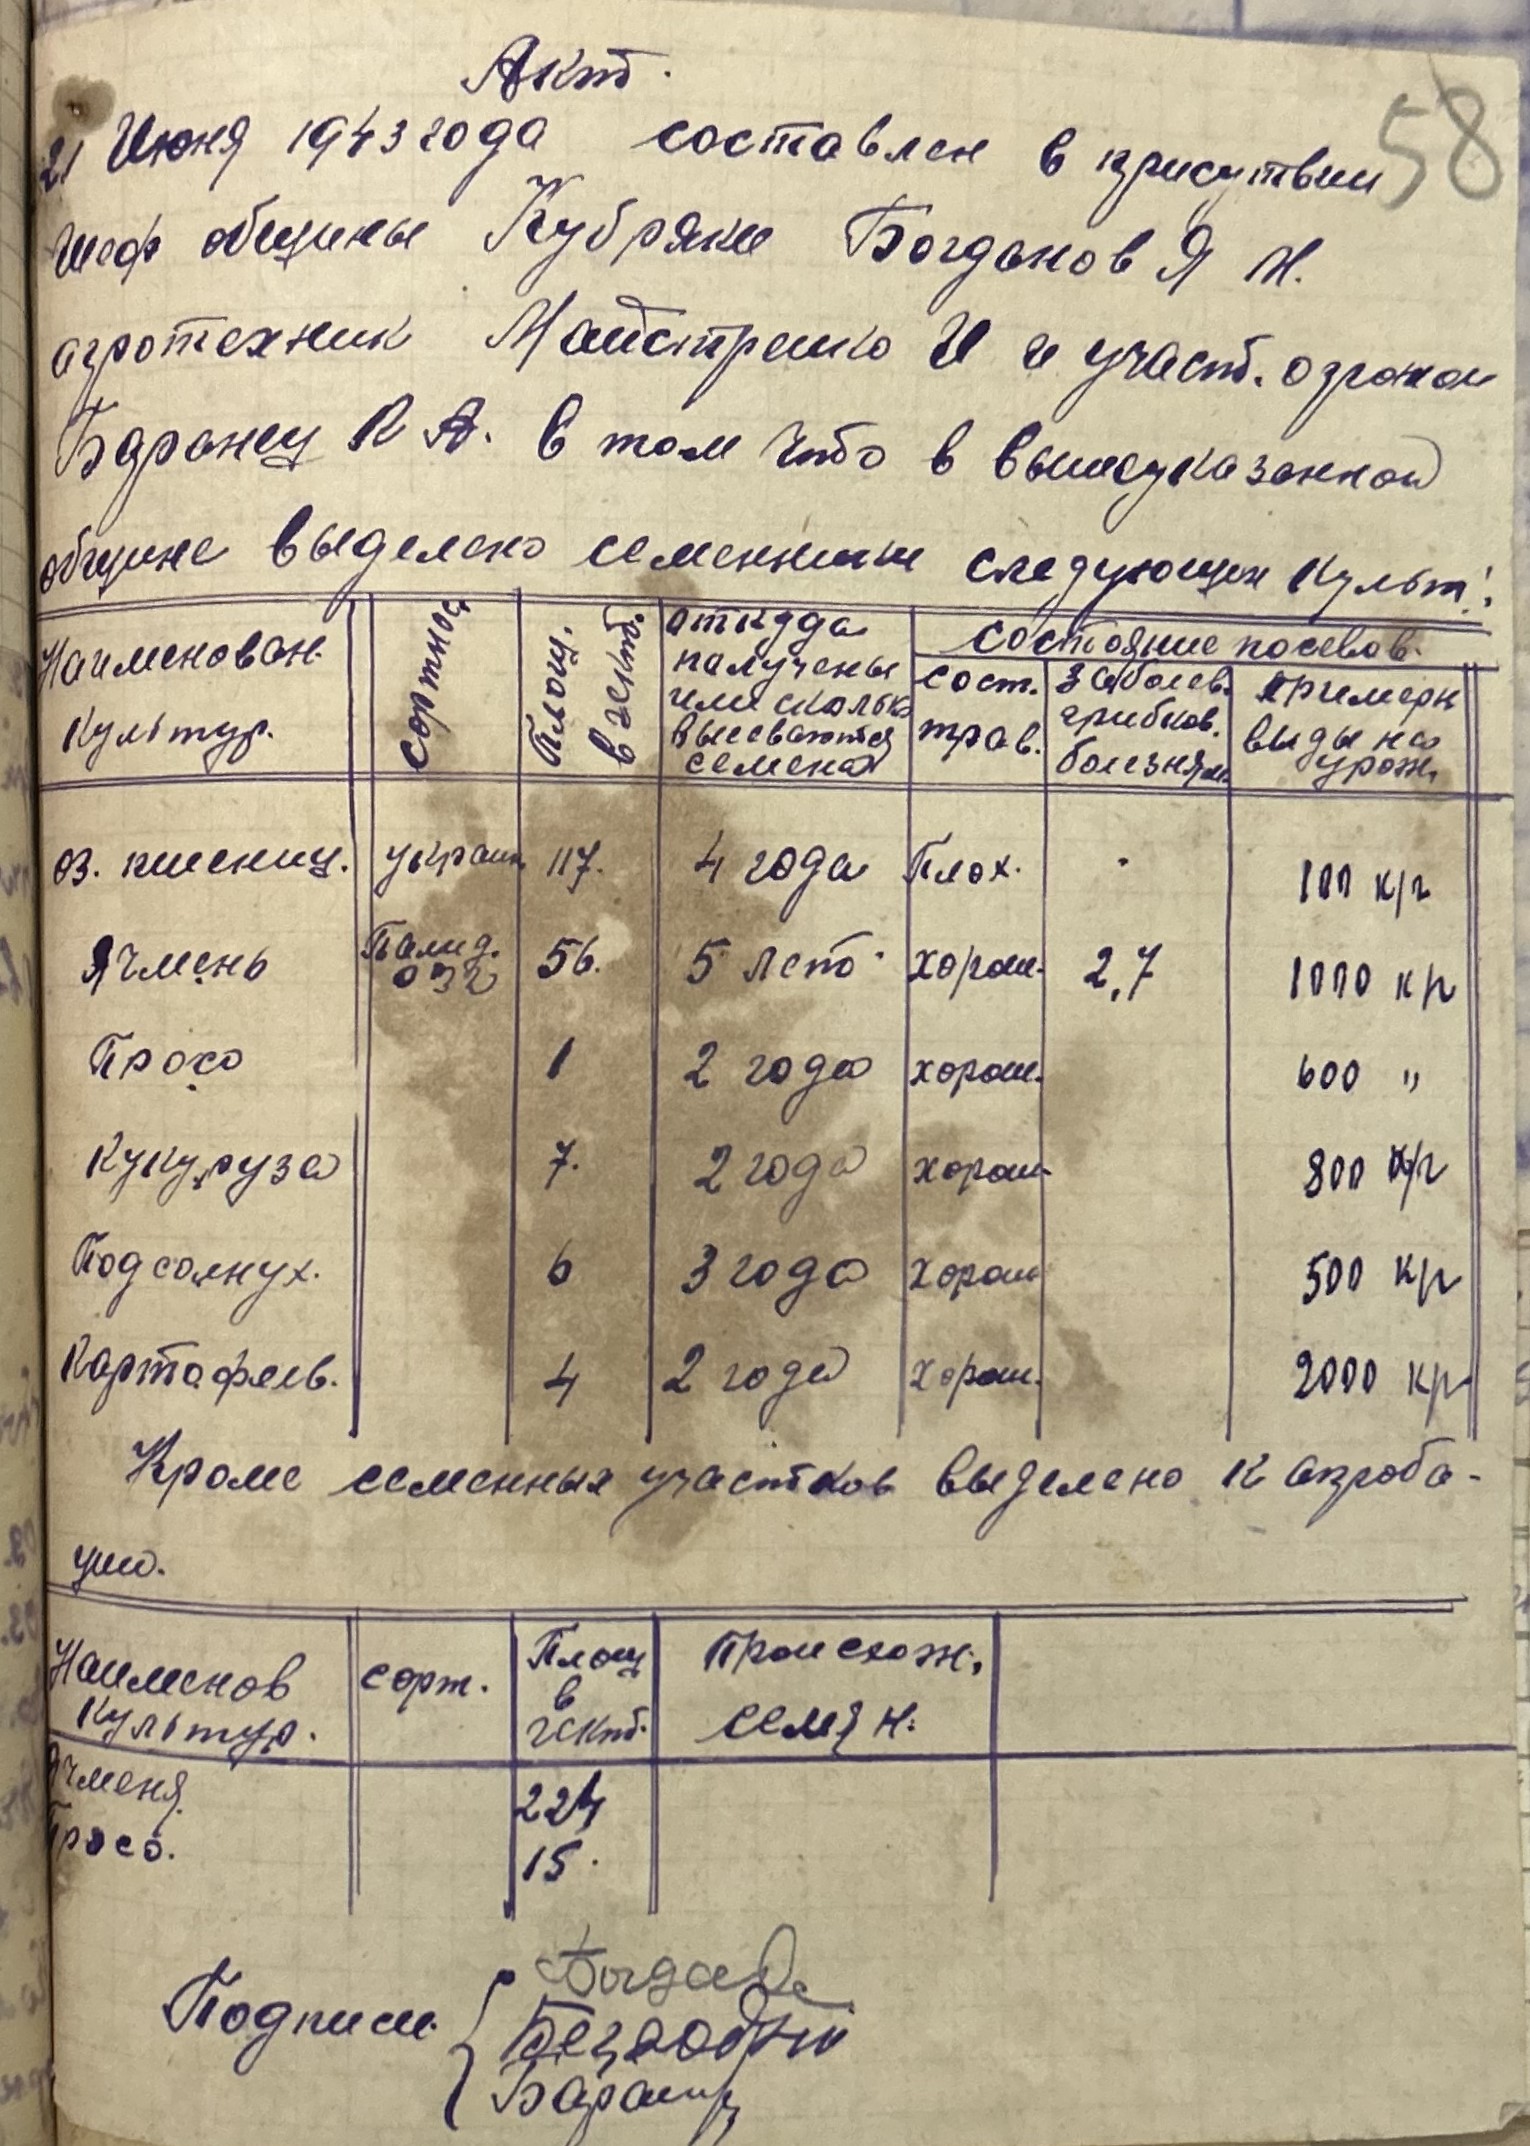 58
Акт.
21 Июня 1943 года составлен в присутствии
шеф общины Кубряки Богданов Я И.
агротехник Майстренко И и участ. агроном
Баранец К А. в том что в вышеуказанной
общине выделено семенники следующих культ:
Наименован. культур. | сортнос | Площ. в гект. | откуда палучены или сколько высеваются семена | состояние посевов.
сост. трав. | заболев. грибков. болезням. | примерн виды на урож.
оз. пшениц. | украин. | 117. | 4 года | Плох. | 100 к/г
Ячмень | Палид. 032 | 56. | 5 лет | хорош. | 2,7 | 1000 к/г
Просо | 1 | 2 года | хорош. | 600 "
Кукуруза | 7. | 2 года | хорош. | 800 к/г
Подсолнух. | 6 | 3 года | хорош | 500 к/г
Картофель. | 4 | 2 года | хорош. | 2000 к/г
Кроме семенных участков выделено к апроба-
ции.
Наименов культур. | сорт. | Площ в гект. | Происхож. семян.
Ячменя | 224
Просо. | 15.
Подписи
Баранец